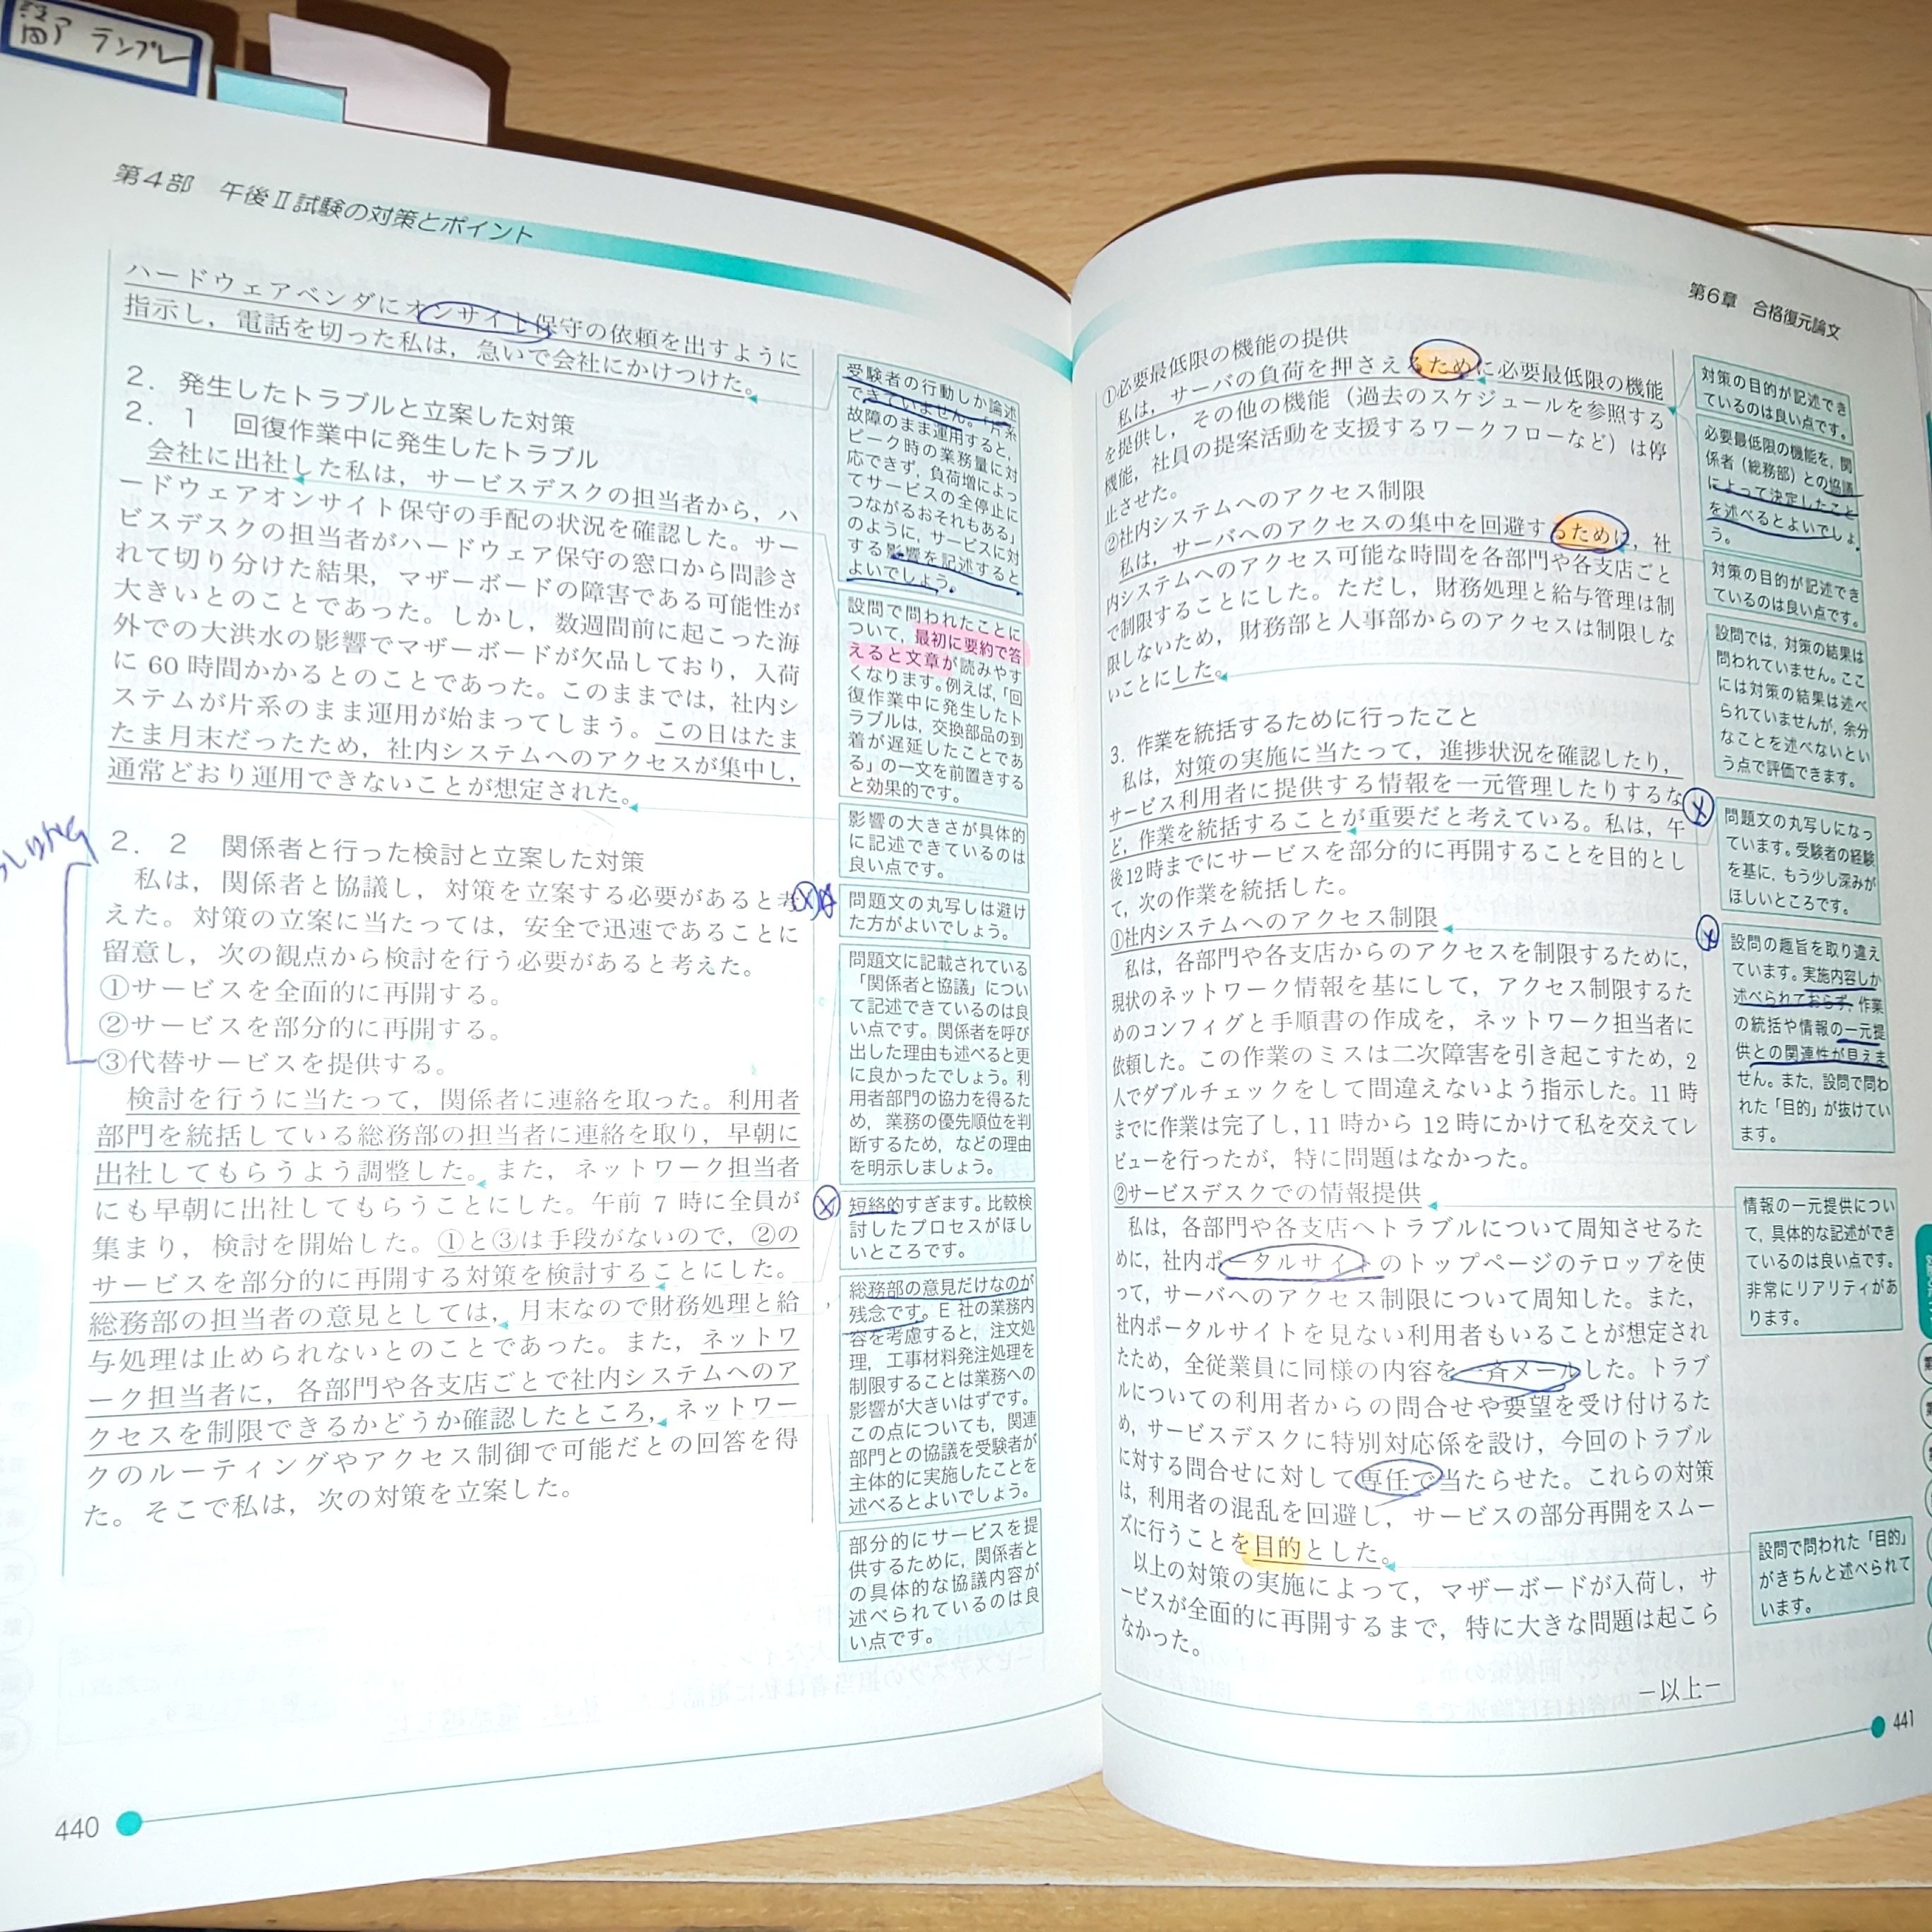 テンプレ
第4部 午後Ⅱ試験の対策とポイント
ハードウェアベンダにオンサイト保守の依頼を出すように
指示し，電話を切った私は，急いで会社にかけつけた。
2．発生したトラブルと立案した対策
2．1 回復作業中に発生したトラブル
会社に出社した私は，サービスデスクの担当者から，ハ
ードウェアオンサイト保守の手配の状況を確認した。サー
ビスデスクの担当者がハードウェア保守の窓口から問診さ
れて切り分けた結果，マザーボードの障害である可能性が
大きいとのことであった。しかし，数週間前に起こった海
外での大洪水の影響でマザーボードが欠品しており，入荷
に 60 時間かかるとのことであった。このままでは，社内シ
ステムが片系のまま運用が始まってしまう。この日はたま
たま月末だったため，社内システムへのアクセスが集中し，
通常どおり運用できないことが想定された。
2．2 関係者と行った検討と立案した対策
私は，関係者と協議し，対策を立案する必要があると考
えた。対策の立案に当たっては，安全で迅速であることに
留意し，次の観点から検討を行う必要があると考えた。
①サービスを全面的に再開する。
②サービスを部分的に再開する。
③代替サービスを提供する。
検討を行うに当たって，関係者に連絡を取った。利用者
部門を統括している総務部の担当者に連絡を取り，早朝に
出社してもらうよう調整した。また，ネットワーク担当者
にも早朝に出社してもらうことにした。午前 7 時に全員が
集まり，検討を開始した。①と③は手段がないので，②の
サービスを部分的に再開する対策を検討することにした。
総務部の担当者の意見としては，月末なので財務処理と給
与処理は止められないとのことであった。また，ネットワ
ーク担当者に，各部門や各支店ごとで社内システムへのア
クセスを制限できるかどうか確認したところ，ネットワー
クのルーティングやアクセス制御で可能だとの回答を得
た。そこで私は，次の対策を立案した。
受験者の行動しか論述
できていません。「片系
故障のまま運用すると，
ピーク時の業務量に対
応できず，負荷増によっ
てサービスの全停止に
つながるおそれもある」
のように，サービスに対
する影響を記述すると
よいでしょう。
設問で問われたことに
ついて，最初に要約で答
えると文章が読みやす
くなります。例えば，「回
復作業中に発生したト
ラブルは，交換部品の到
着が遅延したことであ
る」の一文を前置きする
と効果的です。
影響の大きさが具体的
に記述できているのは
良い点です。
問題文の丸写しは避け
た方がよいでしょう。
問題文に記載されている
「関係者と協議」につい
て記述できているのは良
い点です。関係者を呼び
出した理由も述べると更
に良かったでしょう。利
用者部門の協力を得るた
め，業務の優先順位を判
断するため，などの理由
を明示しましょう。
短絡的すぎます。比較検
討したプロセスがほし
いところです。
総務部の意見だけなのが
残念です。E 社の業務内
容を考慮すると，注文処
理，工事材料発注処理を
制限することは業務への
影響が大きいはずです。
この点についても，関連
部門との協議を受験者が
主体的に実施したことを
述べるとよいでしょう。
部分的にサービスを提
供するために，関係者と
の具体的な協議内容が
述べられているのは良
い点です。
440
第6章 合格復元論文
①必要最低限の機能の提供
私は，サーバの負荷を押さえるために必要最低限の機能
を提供し，その他の機能（過去のスケジュールを参照する
機能，社員の提案活動を支援するワークフローなど）は停
止させた。
②社内システムへのアクセス制限
私は，サーバへのアクセスの集中を回避するために，社
内システムへのアクセス可能な時間を各部門や各支店ごと
で制限することにした。ただし，財務処理と給与管理は制
限しないため，財務部と人事部からのアクセスは制限しな
いことにした。
3．作業を統括するために行ったこと
私は，対策の実施に当たって，進捗状況を確認したり，
サービス利用者に提供する情報を一元管理したりするな
ど，作業を統括することが重要だと考えている。私は，午
後12時までにサービスを部分的に再開することを目的とし
て，次の作業を統括した。
①社内システムへのアクセス制限
私は，各部門や各支店からのアクセスを制限するために，
現状のネットワーク情報を基にして，アクセス制限するた
めのコンフィグと手順書の作成を，ネットワーク担当者に
依頼した。この作業のミスは二次障害を引き起こすため，2
人でダブルチェックをして間違えないよう指示した。11 時
までに作業は完了し，11 時から 12 時にかけて私を交えてレ
ビューを行ったが，特に問題はなかった。
②サービスデスクでの情報提供
私は，各部門や各支店へトラブルについて周知させるた
めに，社内ポータルサイトのトップページのテロップを使
って，サーバへのアクセス制限について周知した。また，
社内ポータルサイトを見ない利用者もいることが想定され
たため，全従業員に同様の内容を一斉メールした。トラブ
ルについての利用者からの問合せや要望を受け付けるた
め，サービスデスクに特別対応係を設け，今回のトラブル
に対する問合せに対して専任で当たらせた。これらの対策
は，利用者の混乱を回避し，サービスの部分再開をスムー
ズに行うことを目的とした。
以上の対策の実施によって，マザーボードが入荷し，サ
ービスが全面的に再開するまで，特に大きな問題は起こら
なかった。
－以上－
対策の目的が記述でき
ているのは良い点です。
必要最低限の機能を，関
係者（総務部）との協議
によって決定したこと
を述べるとよいでしょ
う。
対策の目的が記述でき
ているのは良い点です。
設問では，対策の結果は
問われていません。ここ
には対策の結果は述べ
られていませんが，余分
なことを述べないとい
う点で評価できます。
問題文の丸写しになっ
ています。受験者の経験
を基に，もう少し深みが
ほしいところです。
設問の趣旨を取り違え
ています。実施内容しか
述べられておらず，作業
の統括や情報の一元提
供との関連性が見えま
せん。また，設問で問わ
れた「目的」が抜けてい
ます。
情報の一元提供につい
て，具体的な記述ができ
ているのは良い点です。
非常にリアリティがあ
ります。
設問で問われた「目的」
がきちんと述べられて
います。
441